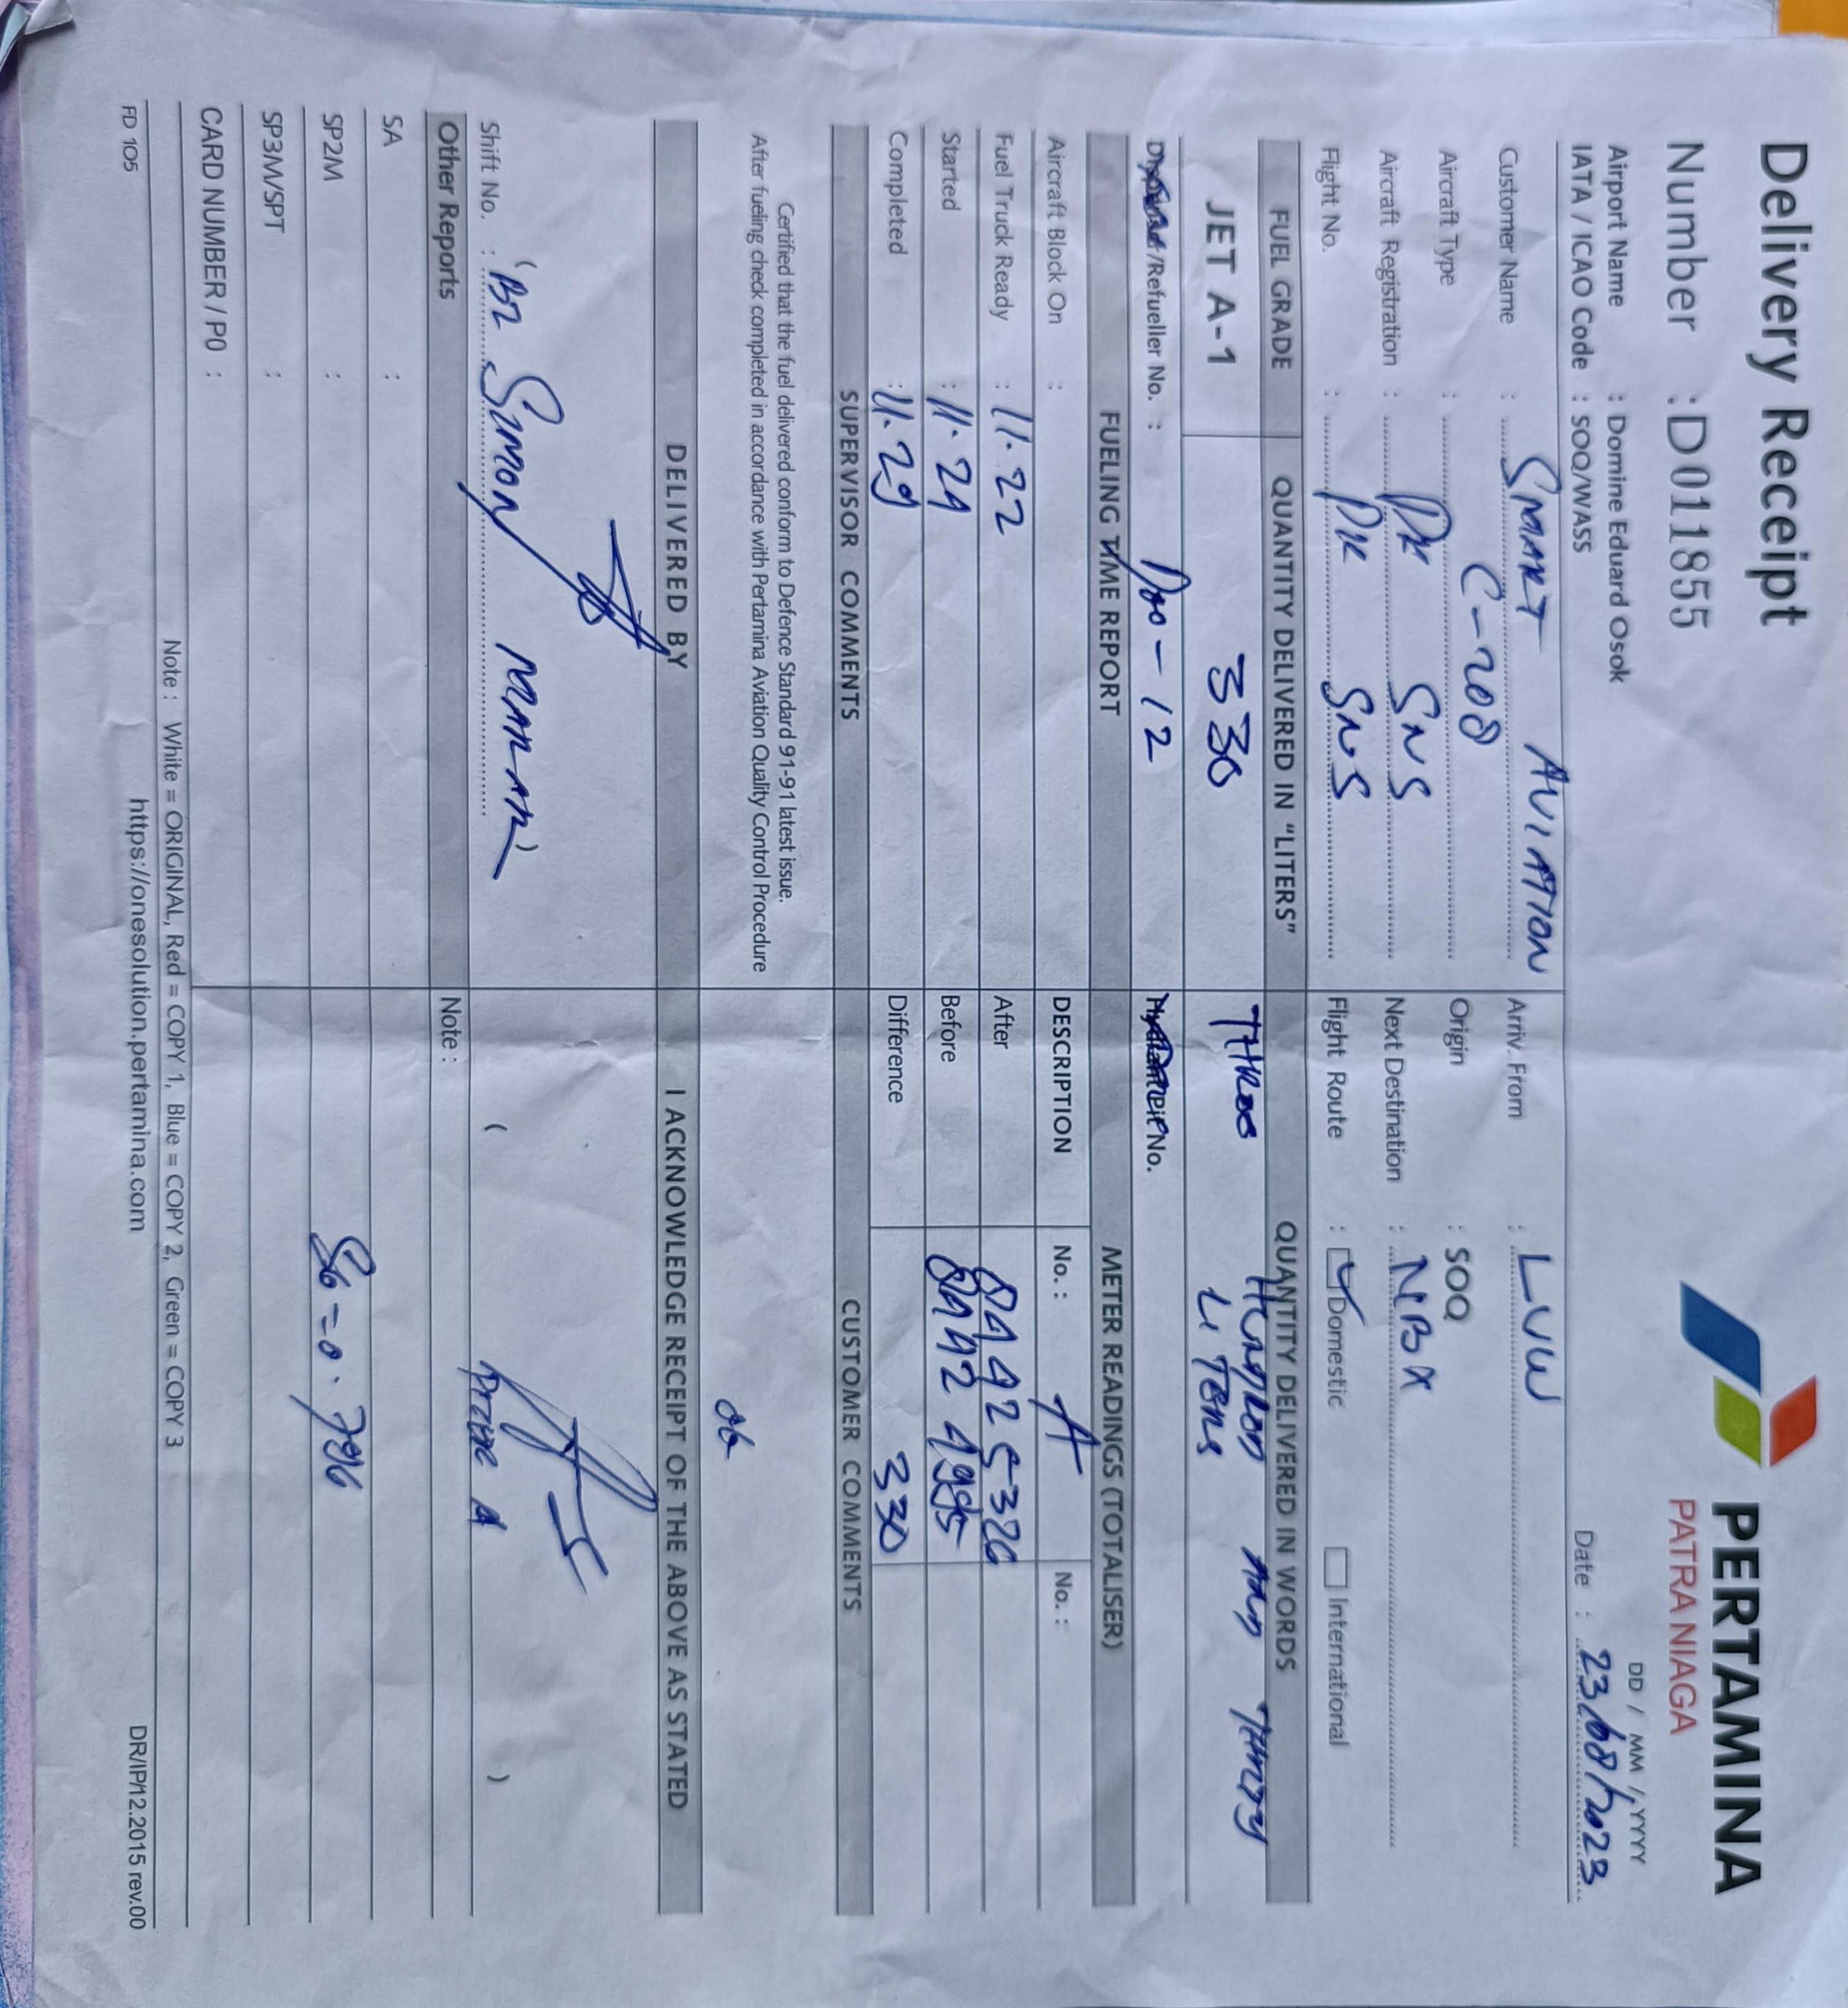 Delivery Receipt
PERTAMINA
PATRA NIAGA
Number : D011855
DD / MM / YYYY
Airport Name : Domine Eduard Osok
IATA / ICAO Code : SOQ/WASS
Date : 23/08/2023
Customer Name : SMART AVIATION
Arriv. From : LUW
Aircraft Type : C-208
Origin : SOQ
Aircraft Registration : PK SNS
Next Destination : NBX
Flight No. : PK SNS
Flight Route : Domestic International
FUEL GRADE QUANTITY DELIVERED IN "LITERS" QUANTITY DELIVERED IN WORDS
JET A-1 330 THREE HUNDRED AND THIRTY
LITERS
/Refueller No. : No.
FUELING TIME REPORT METER READINGS (TOTALISER)
Aircraft Block On :
DESCRIPTION No. : A No. :
Fuel Truck Ready : 11.22
After
Started : 11.24
Before
Completed : 11.29
Difference 330
SUPERVISOR COMMENTS CUSTOMER COMMENTS
Certified that the fuel delivered conform to Defence Standard 91-91 latest issue.
After fueling check completed in accordance with Pertamina Aviation Quality Control Procedure
DELIVERED BY I ACKNOWLEDGE RECEIPT OF THE ABOVE AS STATED
Shift No. : (B2 SIMON ) ( )
Other Reports Note :
SA :
SP2M :
SP3M/SPT :
CARD NUMBER / PO :
Note : White = ORIGINAL, Red = COPY 1, Blue = COPY 2, Green = COPY 3
FD 105 https://onesolution.pertamina.com DR/IP/12.2015 rev.00